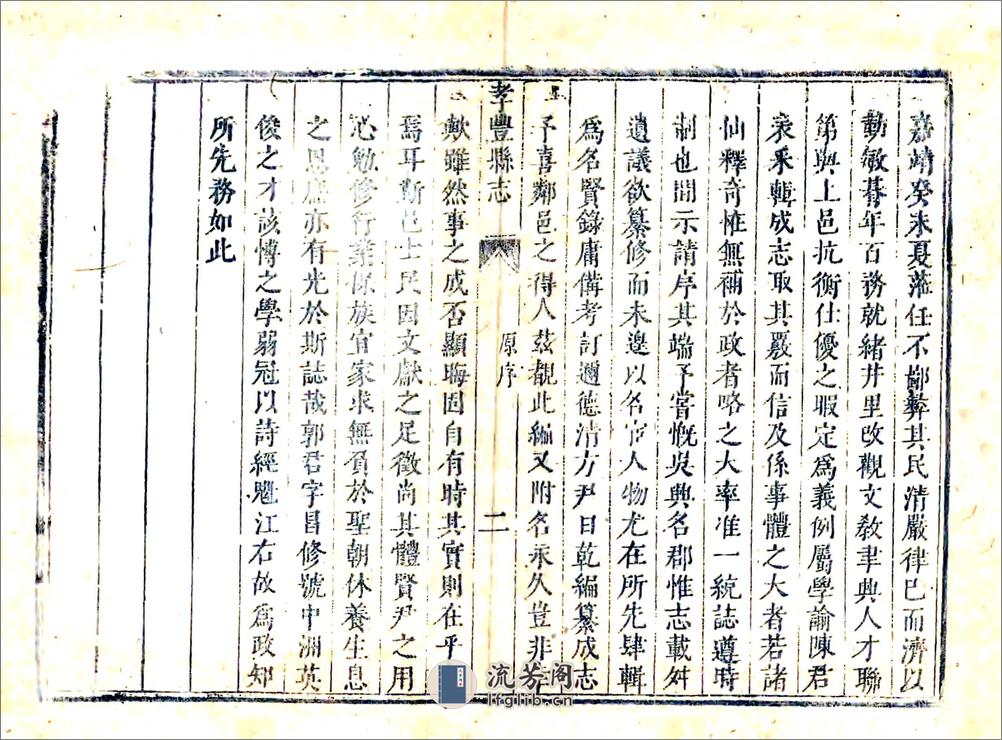 嘉靖癸未夏蒞任不鄙彝其民清嚴律巳而濟以
勤敏朞年百務就緒井里改觀文敎聿興人才聯
第與上邑抗衡仕優之暇定爲義例屬學諭陳君
衮釆輯成志取其覈而信及係事體之大者若諸
仙釋奇恠無補於政者略之大率准一統誌遵時
制也間示請序其端予嘗慨吳興名郡惟志載舛
遺議欲纂修而未遑以名宦人物尤在所先肆輯
爲名賢錄庸備考訂邇德清方尹日乾編纂成志
予喜鄰邑之得人茲覩此編又附名永久豈非
孝豐縣志
原序
二
歟雖然事之成否顯晦固自有時其實則在乎
焉耳斯邑士民因文獻之足徵尚其體賢尹之用
心勉修行業保族宜家求無負於聖朝休養生息
之恩庶亦有光於斯誌哉郭君字昌修號中洲英
俊之才該博之學弱冠以詩經魁江右故爲政知
所先務如此
流芳阁
lfglib.cn